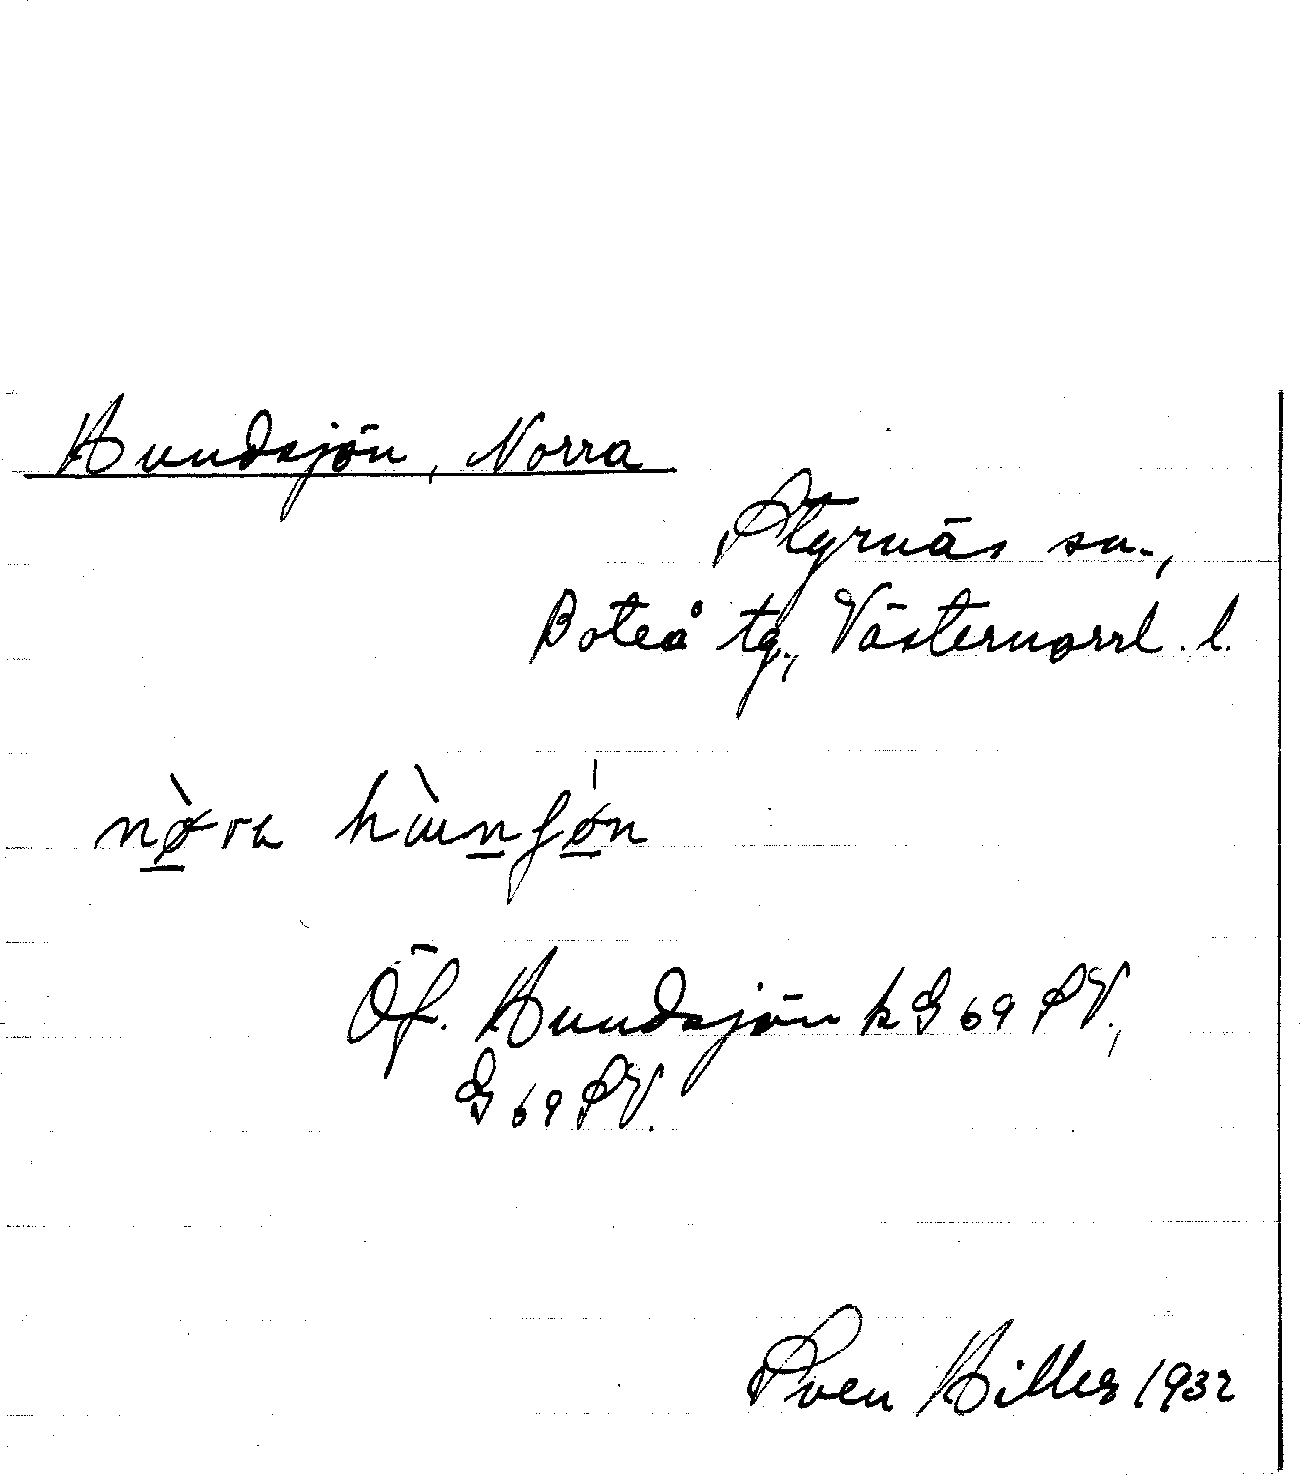 Hundsjön, Norra
Styrnäs sn.,
Boteå tg., Västernorrl. l.
nø̀ra
Öf. Hundsjön k G 69 SV.,
G 69 SV.
Sven Hiller 1932